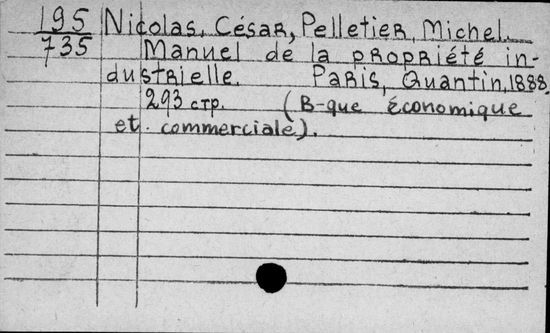 195 Nicolas, César, Pelletier, Michel.
735 Manuel de la propriété in-
dustrielle. Paris, Quantin, 1888.
293 стр. (B-que économique
et commerciale).